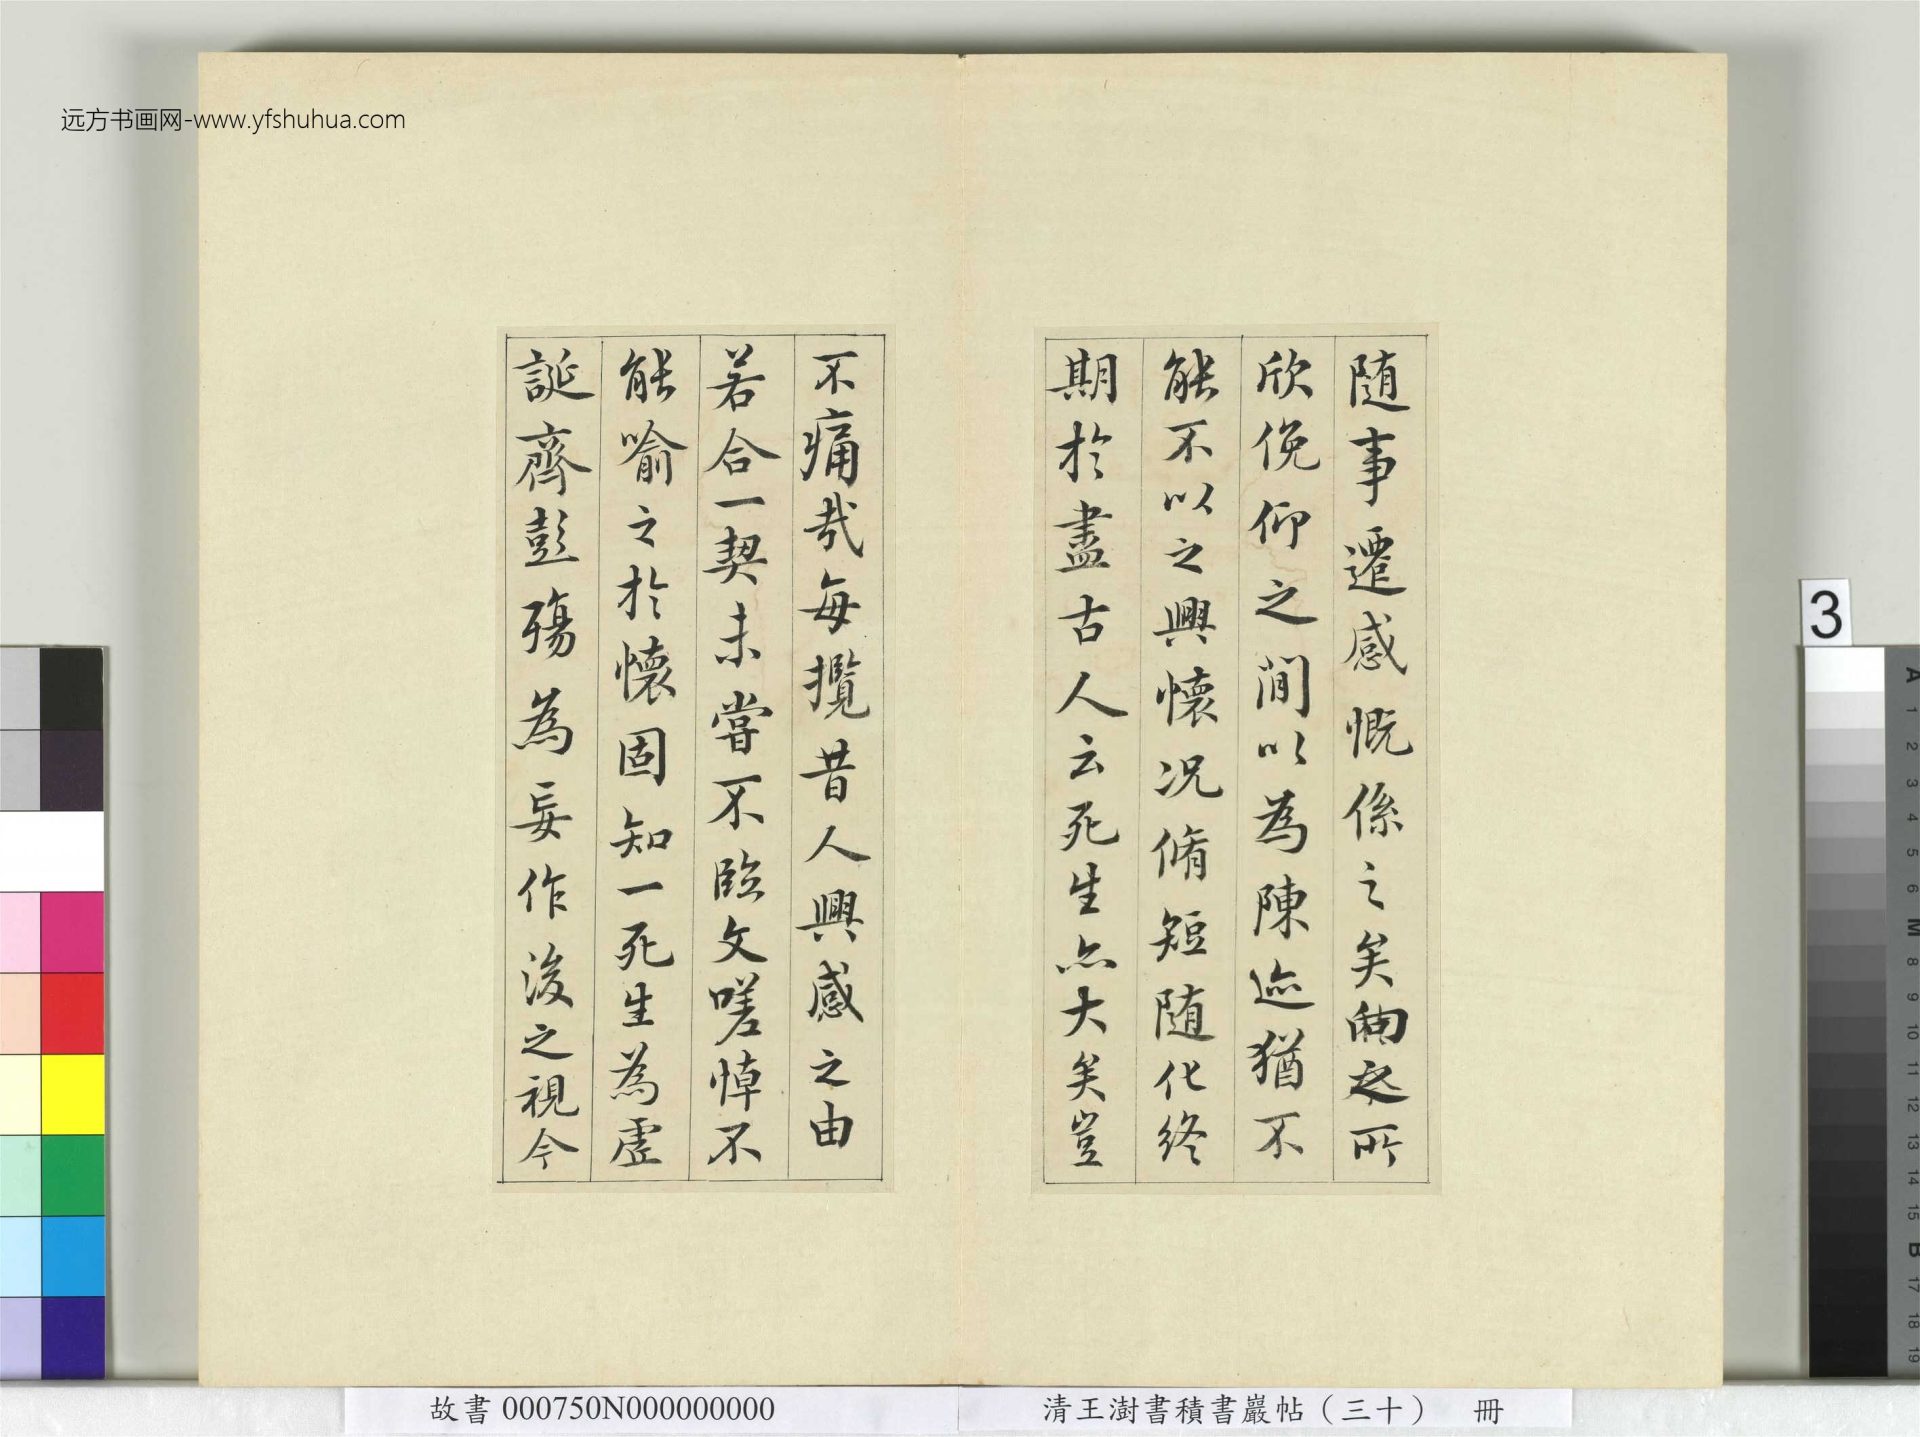 远方书画网-www.yfshuhua.com
随事遷感慨係之矣向之所
欣俛仰之間以為陳迹猶不
能不以之興懷况脩短随化終
期於盡古人云死生亦大矣豈
不痛哉每攬昔人興感之由
若合一契未嘗不臨文嗟悼不
能喻之於懷固知一死生為虛
誕齊彭殤為妄作後之視今
3
A
1
2
3
4
5
6
M
8
9
10
11
12
13
14
15
B
17
18
19
故書 000750N000000000
清王澍書積書巖帖（三十） 冊